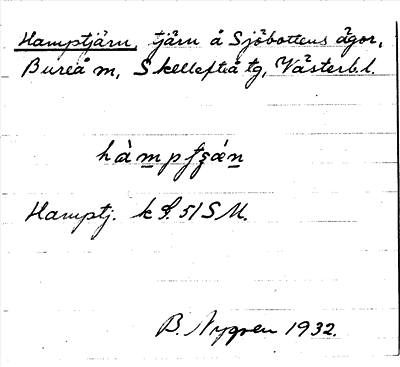 Hamptjärn, tjärn å Sjöbottens ägor,
Bureå m, Skellefteå tg, Västerb.l.
Hamptj. 51 SM.
B. Nygren 1932.